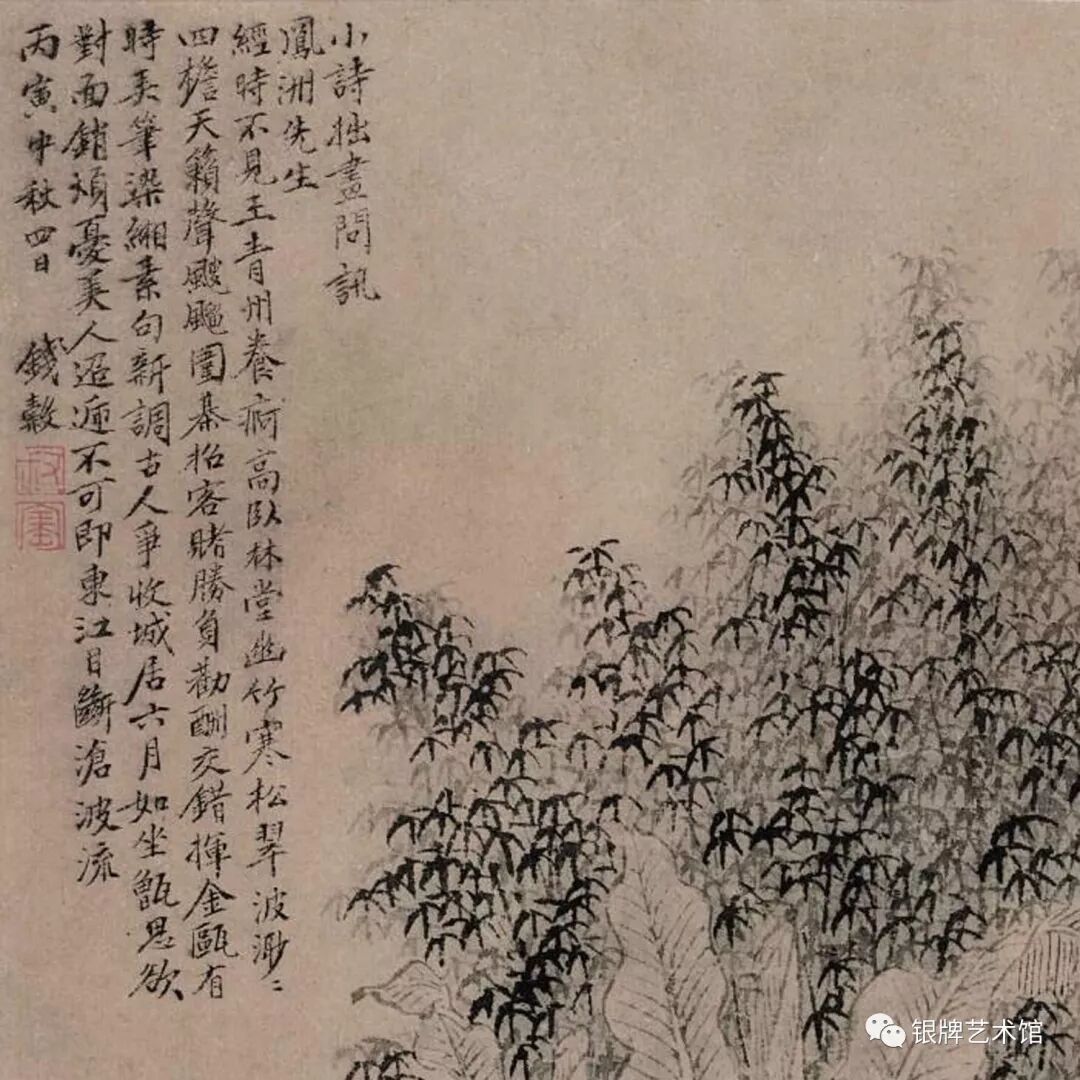 小詩拙畫問訊
鳳洲先生
經時不見王青州養痾高臥林堂幽竹寒松翠波渺〻
四檐天籟聲颼飀圍棊招客賭勝負勸酬交錯揮金甌有
時弄筆染緗素句新調古人爭收城居六月如坐甑思欲
對面銷煩憂美人迢遞不可即東江目斷滄波流
丙寅中秋四日 錢穀
叔寶
银牌艺术馆